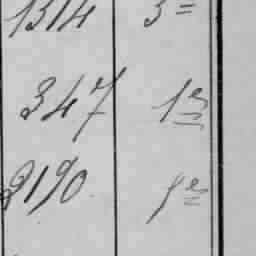 1314 3=
347 1es
2190 1es